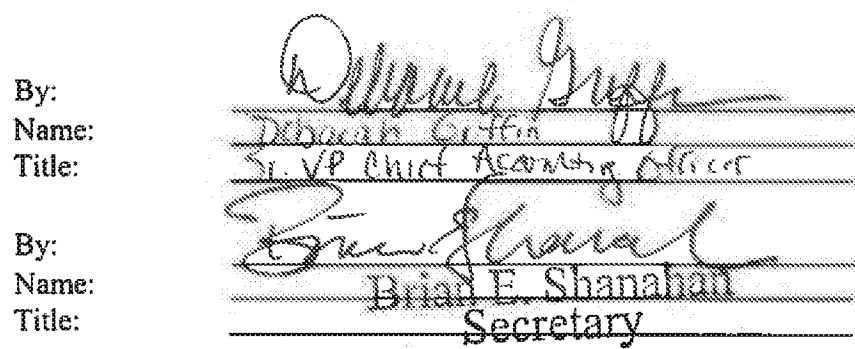 By: Deborah Griffin
Name: Deborah Griffin
Title: Sr. VP Chief Accounting Officer
By: Brian E Shanahan
Name: Brian E. Shanahan
Title: Secretary